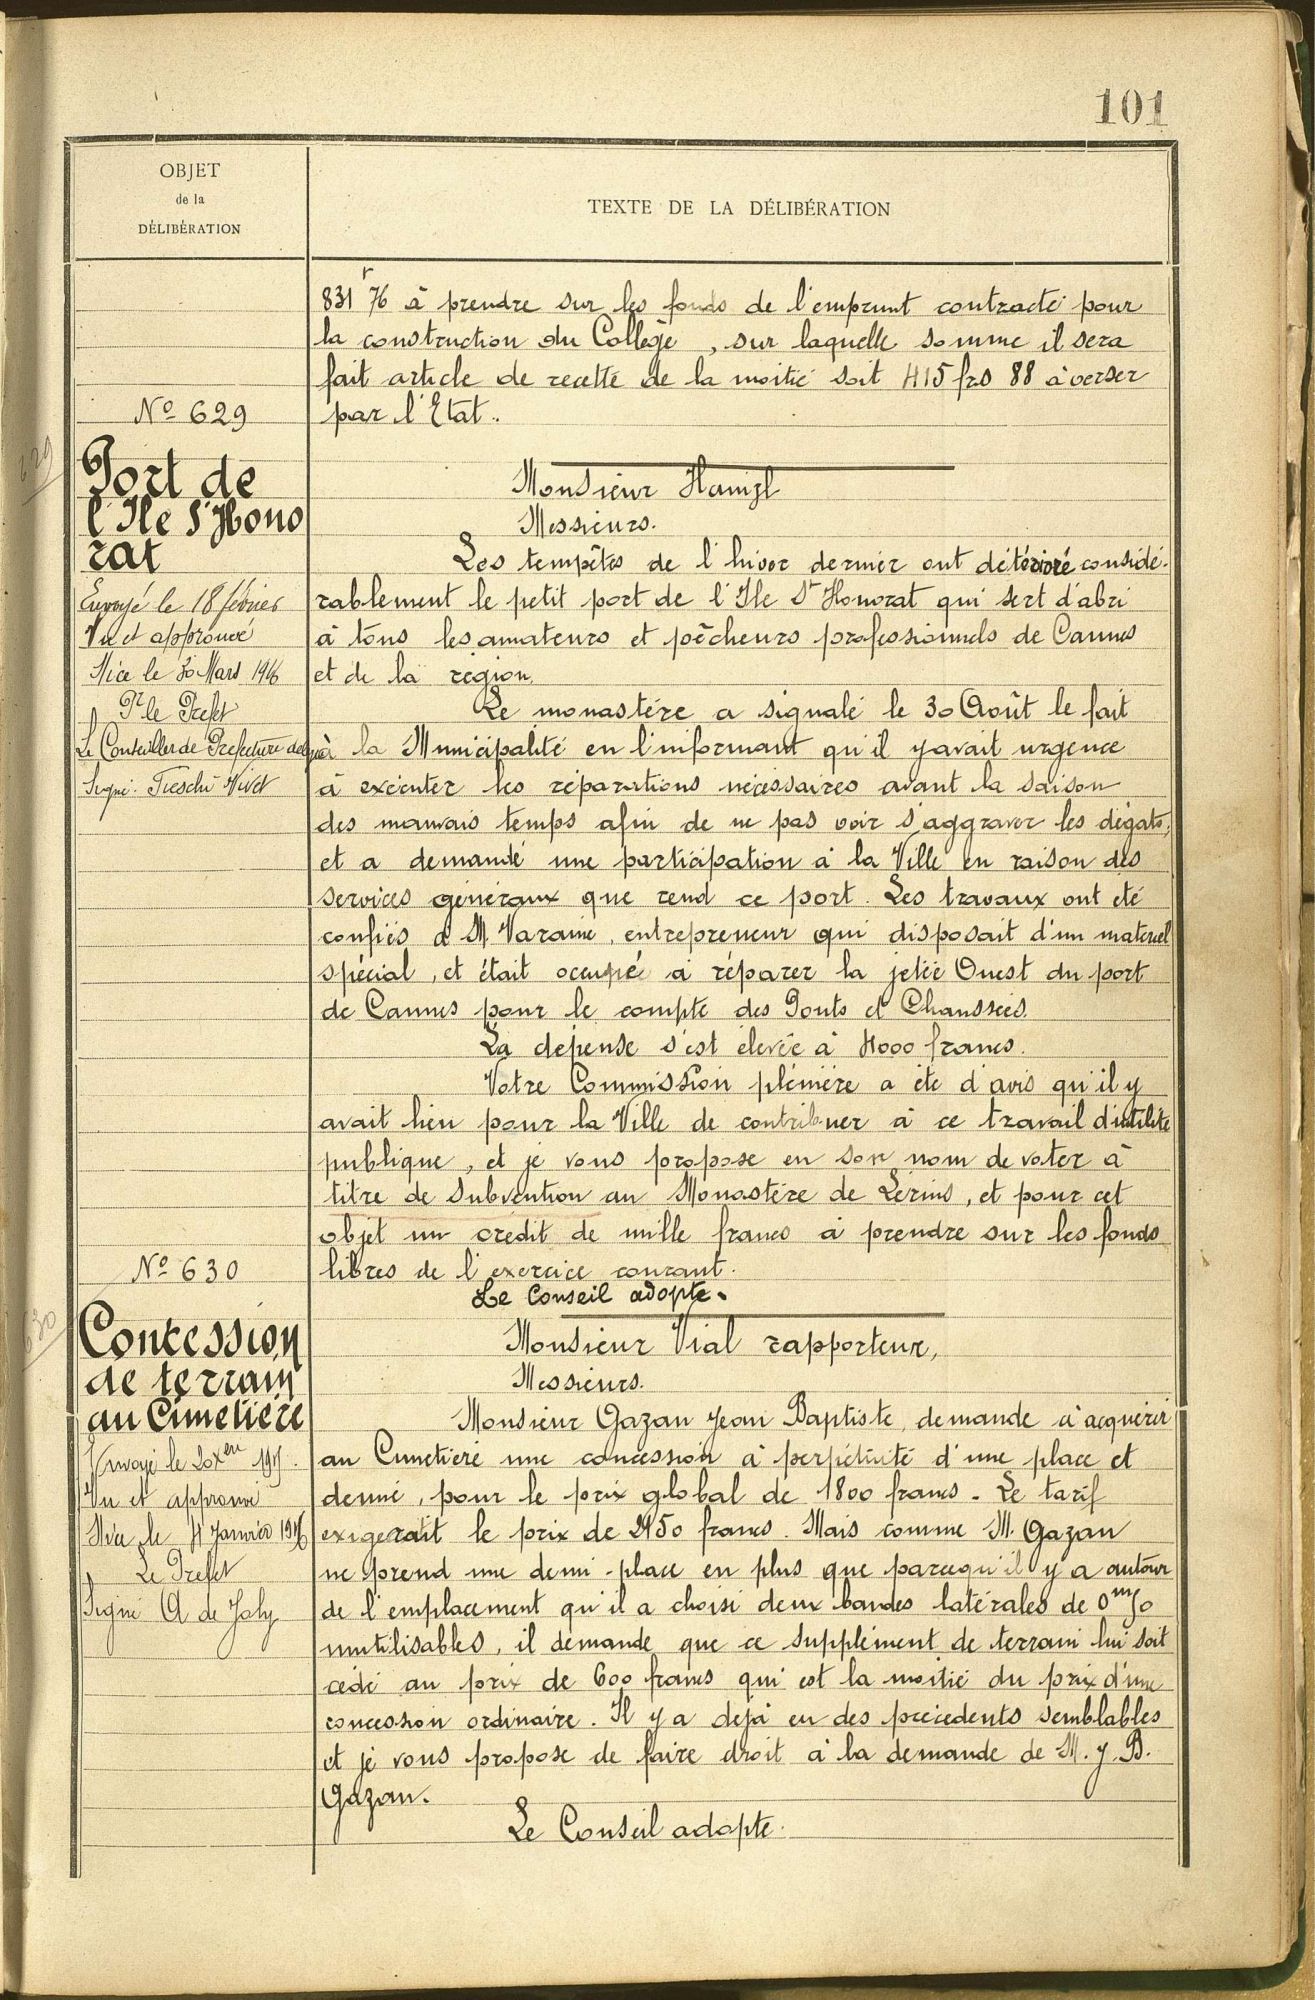 101
OBJET
de la
DÉLIBÉRATION
TEXTE DE LA DÉLIBÉRATION
831 f 76 à prendre sur les fonds de l'emprunt contracté pour
la construction du Collège, sur laquelle somme il sera
fait article de recette de la moitié soit 415 frs 88 à verser
par l'Etat.
Nº 629
629
Port de
l'Ile St Hono
rat
Envoyé le 18 février
Vu et approuvé
Nice le 30 Mars 1916
Pr le Préfet
Le Conseiller de Préfecture délégué
Signé:
Monsieur
Messieurs.
Les tempêtes de l'hiver dernier ont détérioré considé-
rablement le petit port de l'Ile St Honorat qui sert d'abri
à tous les amateurs et pêcheurs professionnels de Cannes
et de la région.
Le monastère a signalé le 30 Août le fait
à la Municipalité en l'informant qu'il y avait urgence
à exécuter les réparations nécessaires avant la saison
des mauvais temps afin de ne pas voir s'aggraver les dégats,
et a demandé une participation à la Ville en raison des
services généraux que rend ce port. Les travaux ont été
confiés à M. Varaine, entrepreneur qui disposait d'un matériel
spécial, et était occupé à réparer la jetée Ouest du port
de Cannes pour le compte des Ponts et Chaussées.
La dépense s'est élevée à 4000 francs.
Votre Commission plénière a été d'avis qu'il y
avait lieu pour la Ville de contribuer à ce travail d'utilité
publique, et je vous propose en son nom de voter à
titre de subvention au Monastère de Lérins, et pour cet
objet un crédit de mille francs à prendre sur les fonds
libres de l'exercice courant.
Le Conseil adopte.
Nº 630
630
Concession
de terrain
au Cimetière
Envoyé le 20 Xbre 1915.
Vu et approuvé
Nice le 4 Janvier 1916
Le Préfet
Signé A de Joly
Monsieur Vial rapporteur,
Messieurs.
Monsieur Gazan Jean Baptiste, demande à acquérir
au Cimetière une concession à perpétuité d'une place et
demie, pour le prix global de 1800 francs. Le tarif
exigerait le prix de 2450 francs. Mais comme M. Gazan
ne prend une demi-place en plus que parcequ'il y a autour
de l'emplacement qu'il a choisi deux bandes latérales de 0m50
inutilisables, il demande que ce supplément de terrain lui soit
cédé au prix de 600 francs qui est la moitié du prix d'une
concession ordinaire. Il y a déjà eu des précédents semblables
et je vous propose de faire droit à la demande de M. J. B.
Gazan.
Le Conseil adopte.